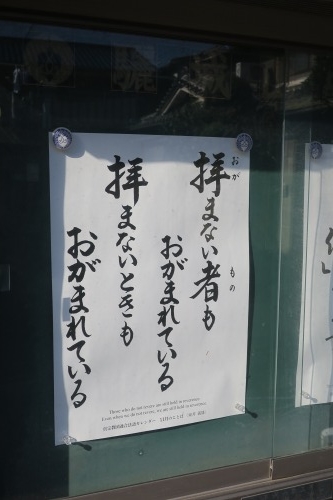 拝まない者も
おがまれている
拝まないときも
おがまれている
Those who do not revere are still held in reverence.
Even when we do not revere, we are still held in reverence.